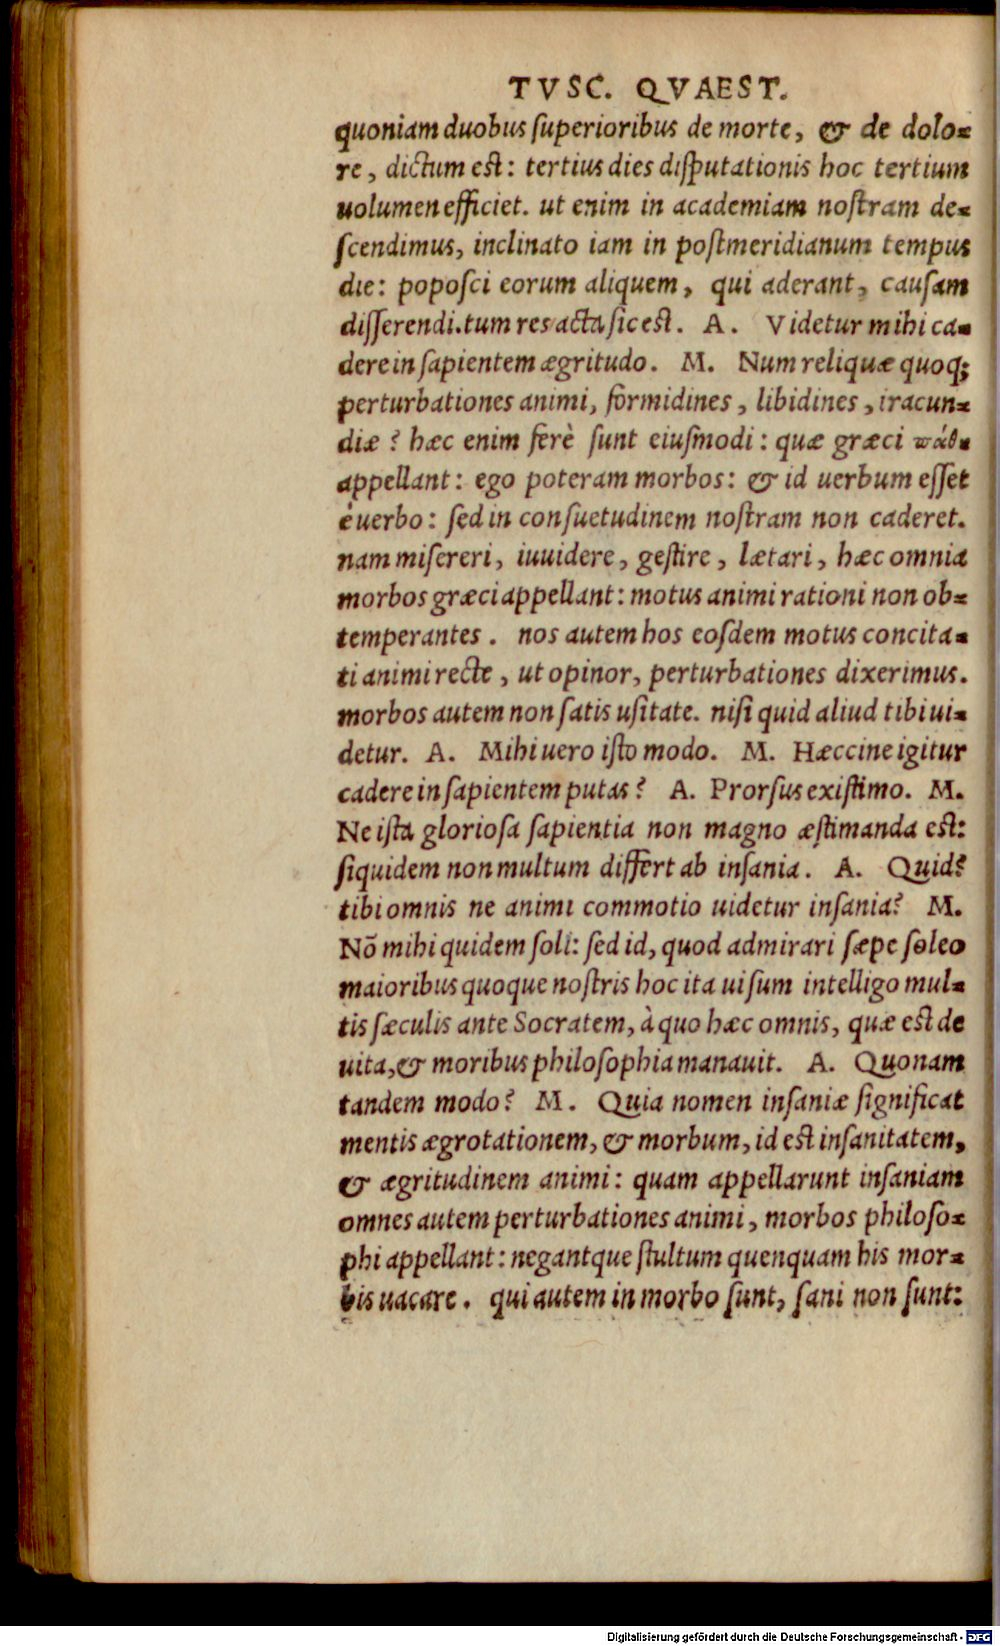 TVSC. QVAEST.
quoniam duobus ſuperioribus de morte, & de dolo-
re, dictum eſt: tertius dies diſputationis hoc tertium
uolumen efficiet. ut enim in academiam noſtram de-
ſcendimus, inclinato iam in poſtmeridianum tempus
die: popoſci eorum aliquem, qui aderant, cauſam
diſſerendi. tum res acta ſic eſt. A. Videtur mihi ca-
dere in ſapientem ægritudo. M. Num reliquæ quoq;
perturbationes animi, formidines, libidines, iracun-
diæ? hæc enim ferè ſunt eiuſmodi: quæ græci
appellant: ego poteram morbos: & id uerbum eſſet
è uerbo: ſed in conſuetudinem noſtram non caderet.
nam miſereri, iuuidere, geſtire, lætari, hæc omnia
morbos græci appellant: motus animi rationi non ob-
temperantes. nos autem hos eoſdem motus concita-
ti animi recte, ut opinor, perturbationes dixerimus.
morbos autem non ſatis uſitate. niſi quid aliud tibi ui-
detur. A. Mihi uero iſto modo. M. Hæccine igitur
cadere in ſapientem putas? A. Prorſus exiſtimo. M.
Ne iſta glorioſa ſapientia non magno æſtimanda eſt:
ſiquidem non multum differt ab inſania. A. Quid?
tibi omnis ne animi commotio uidetur inſania? M.
Nõ mihi quidem ſoli: ſed id, quod admirari ſæpe ſoleo
maioribus quoque noſtris hoc ita uiſum intelligo mul-
tis ſæculis ante Socratem, à quo hæc omnis, quæ eſt de
uita, & moribus philoſophia manauit. A. Quonam
tandem modo? M. Quia nomen inſaniæ ſignificat
mentis ægrotationem, & morbum, id eſt inſanitatem,
& ægritudinem animi: quam appellarunt inſaniam
omnes autem perturbationes animi, morbos philoſo-
phi appellant: negantque ſtultum quenquam his mor-
bis uacare. qui autem in morbo ſunt, ſani non ſunt:
Digitalisierung gefördert durch die Deutsche Forschungsgemeinschaft - DFG